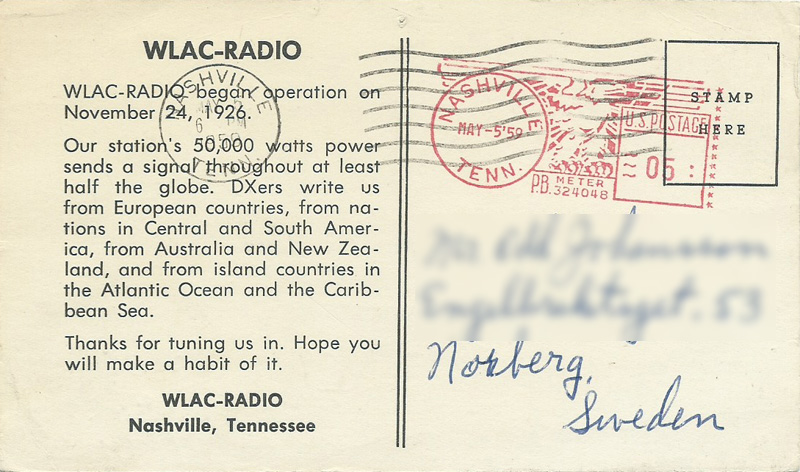 WLAC-RADIO
WLAC-RADIO began operation on
November 24, 1926.
Our station's 50,000 watts power
sends a signal throughout at least
half the globe. DXers write us
from European countries, from na-
tions in Central and South Amer-
ica, from Australia and New Zea-
land, and from island countries in
the Atlantic Ocean and the Carib-
bean Sea.
Thanks for tuning us in. Hope you
will make a habit of it.
WLAC-RADIO
Nashville, Tennessee
NASHVILLE
TENN.
NASHVILLE
MAY-5'59
TENN.
P.B. METER
324048
U.S. POSTAGE
05
STAMP
HERE
Norberg,
Sweden